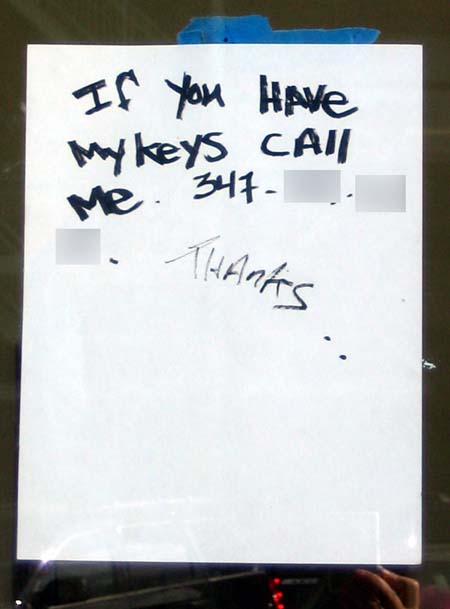 If you HAVE
my keys CAll
Me. 347-
THAnks